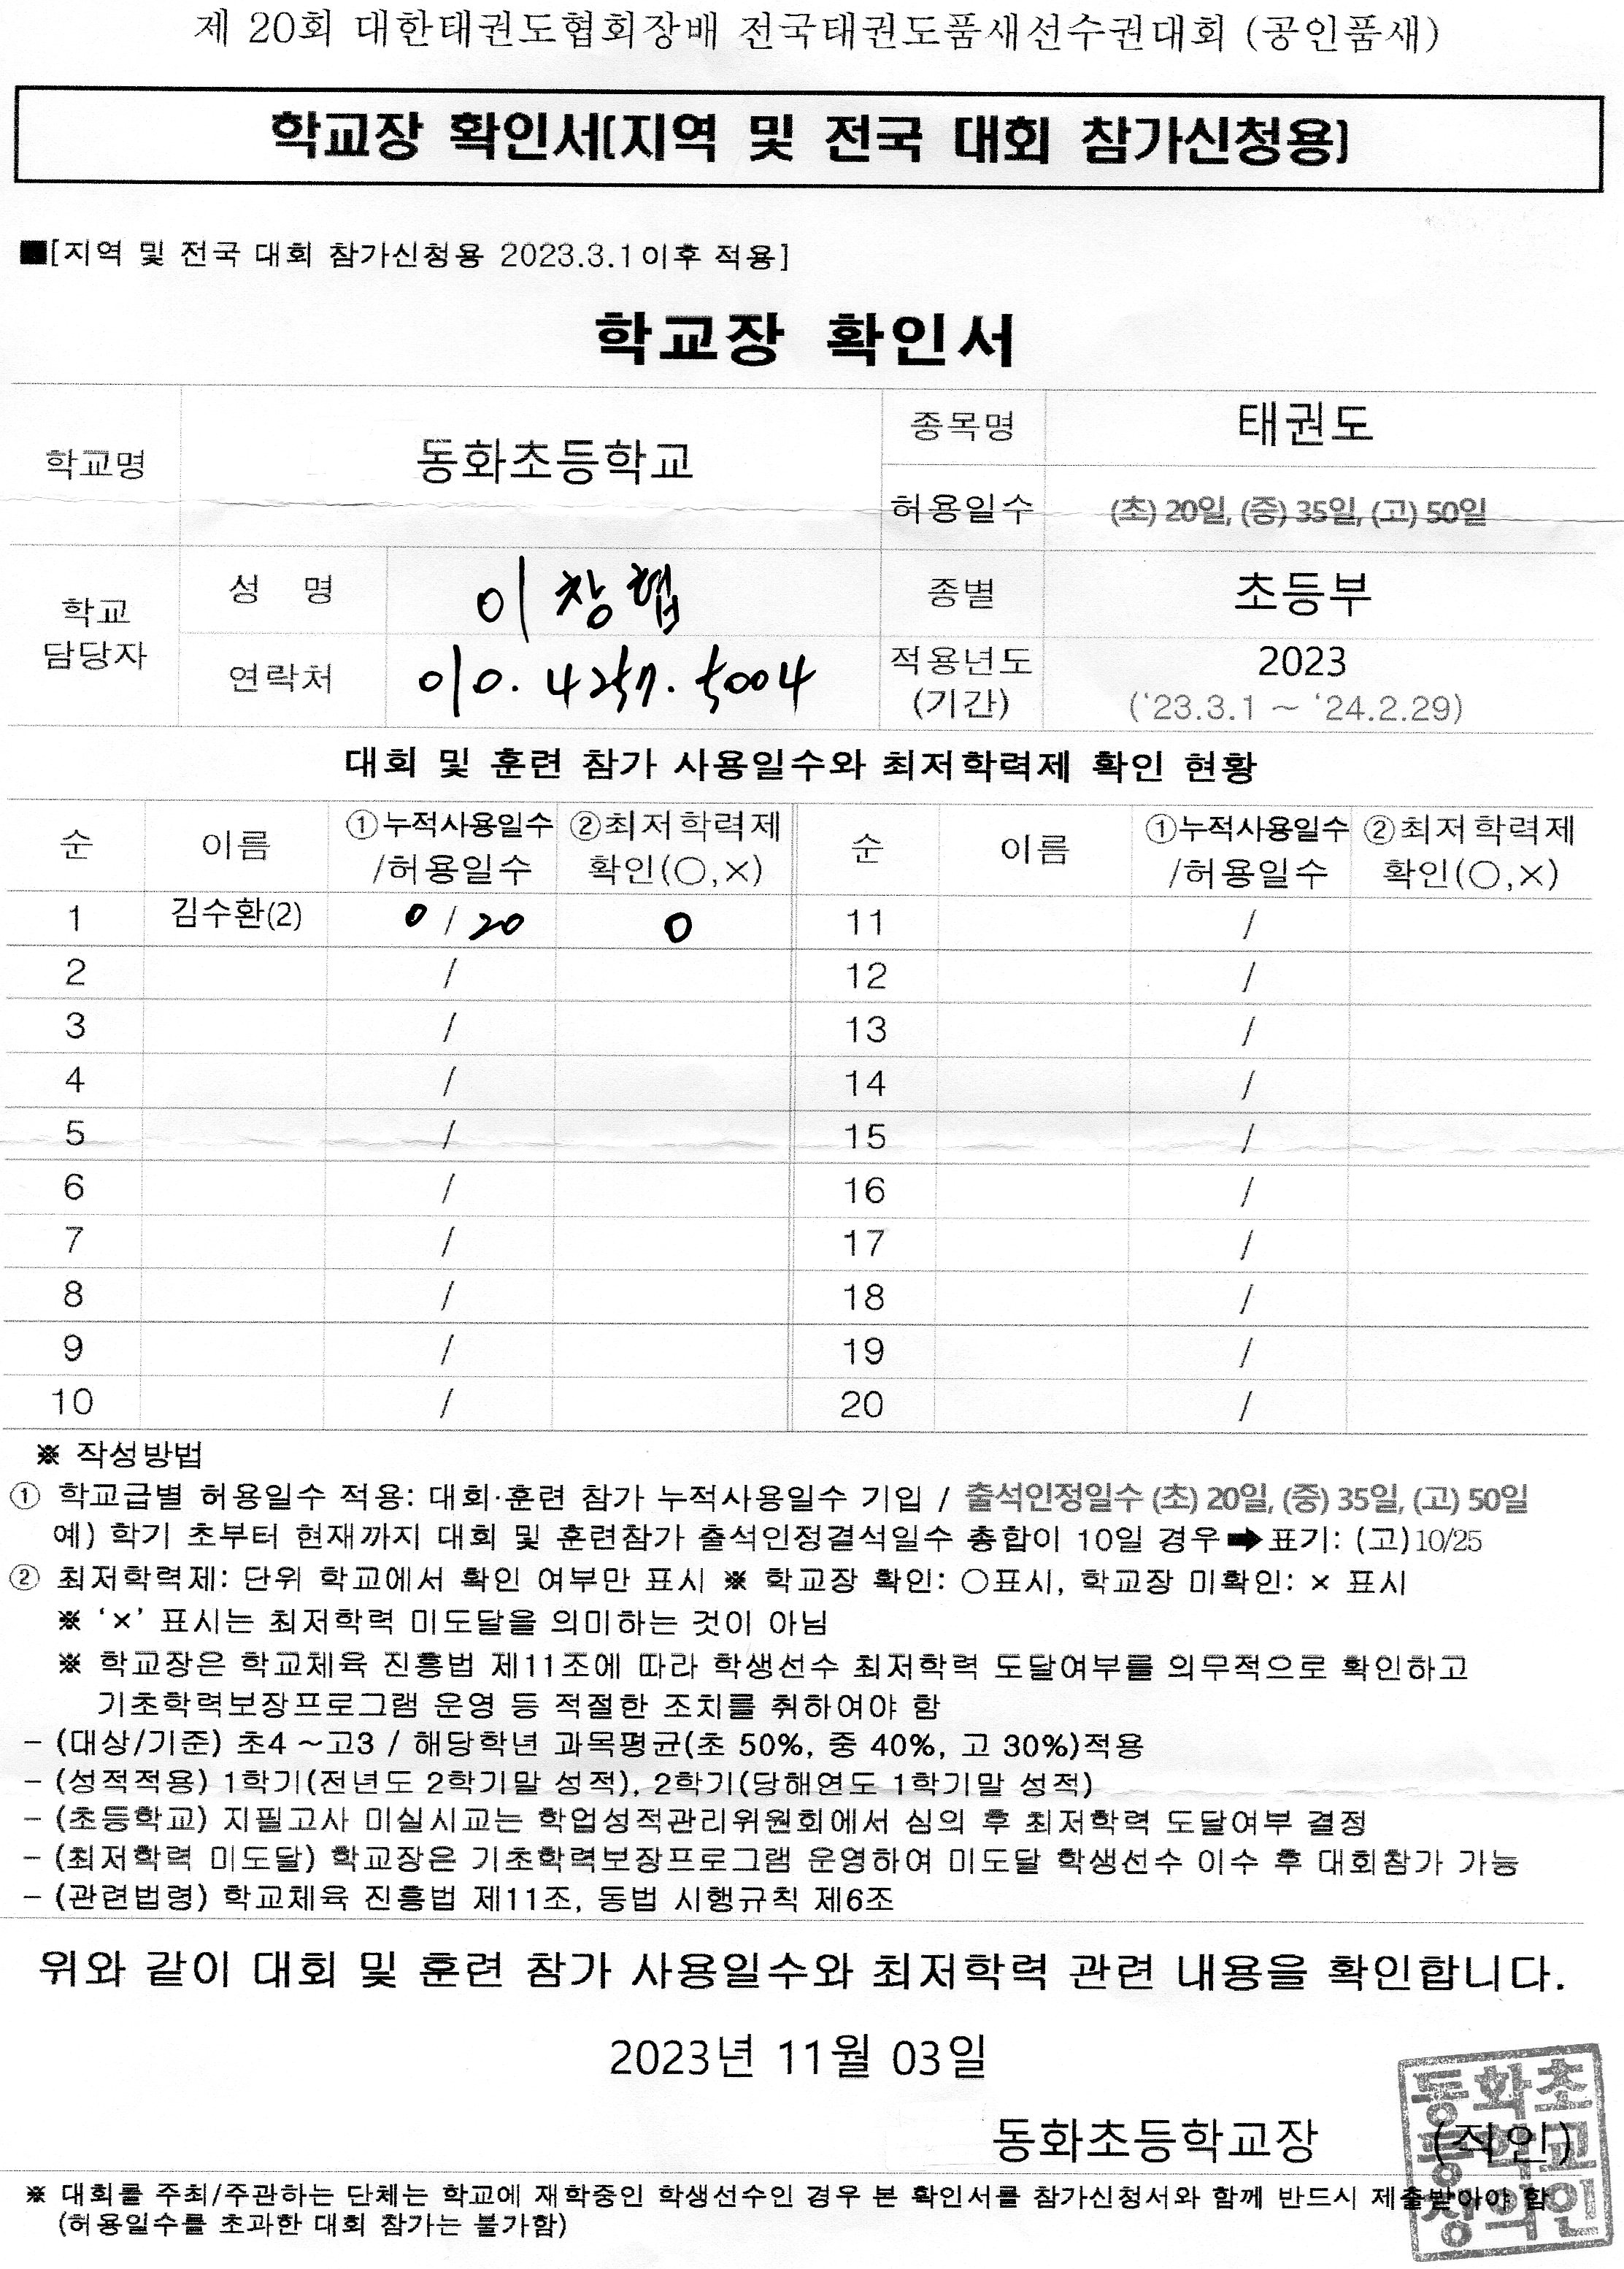 제 20회 대한태권도협회장배 전국태권도품새선수권대회 (공인품새)
학교장 확인서[지역 및 전국 대회 참가신청용]
■[지역 및 전국 대회 참가신청용 2023.3.1이후 적용]
학교장 확인서
학교명 동화초등학교 종목명 태권도
허용일수 (초) 20일, (중) 35일, (고) 50일
학교 담당자 성 명 이창협 종별 초등부
연락처 010. 4257. 5004 적용년도 (기간) 2023 (‘23.3.1 ~ ‘24.2.29)
대회 및 훈련 참가 사용일수와 최저학력제 확인 현황
순 이름 ①누적사용일수 /허용일수 ②최저학력제 확인(○,×) 순 이름 ①누적사용일수 /허용일수 ②최저학력제 확인(○,×)
1 김수환(2) 0 / 20 0 11 /
2 / 12 /
3 / 13 /
4 / 14 /
5 / 15 /
6 / 16 /
7 / 17 /
8 / 18 /
9 / 19 /
10 / 20 /
※ 작성방법
① 학교급별 허용일수 적용: 대회·훈련 참가 누적사용일수 기입 / 출석인정일수 (초) 20일, (중) 35일, (고) 50일
예) 학기 초부터 현재까지 대회 및 훈련참가 출석인정결석일수 총합이 10일 경우➡표기: (고)10/25
② 최저학력제: 단위 학교에서 확인 여부만 표시 ※ 학교장 확인: ○표시, 학교장 미확인: × 표시
※ ‘×’ 표시는 최저학력 미도달을 의미하는 것이 아님
※ 학교장은 학교체육 진흥법 제11조에 따라 학생선수 최저학력 도달여부를 의무적으로 확인하고
기초학력보장프로그램 운영 등 적절한 조치를 취하여야 함
- (대상/기준) 초4 ~고3 / 해당학년 과목평균(초 50%, 중 40%, 고 30%)적용
- (성적적용) 1학기(전년도 2학기말 성적), 2학기(당해연도 1학기말 성적)
- (초등학교) 지필고사 미실시교는 학업성적관리위원회에서 심의 후 최저학력 도달여부 결정
- (최저학력 미도달) 학교장은 기초학력보장프로그램 운영하여 미도달 학생선수 이수 후 대회참가 가능
- (관련법령) 학교체육 진흥법 제11조, 동법 시행규칙 제6조
위와 같이 대회 및 훈련 참가 사용일수와 최저학력 관련 내용을 확인합니다.
2023년 11월 03일
동화초등학교장 (직인)
동화초
등학교
장의인
※ 대회를 주최/주관하는 단체는 학교에 재학중인 학생선수인 경우 본 확인서를 참가신청서와 함께 반드시 제출받아야 함
(허용일수를 초과한 대회 참가는 불가함)